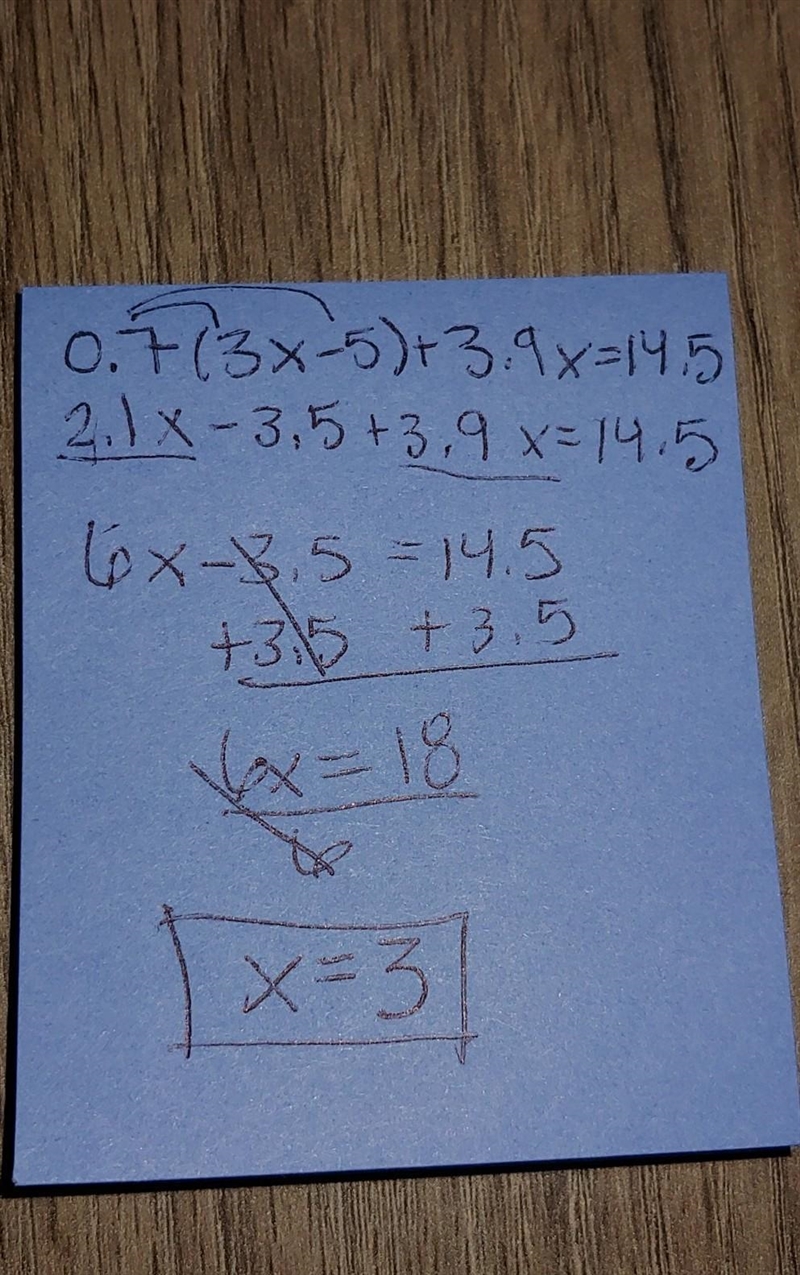 0.7(3x-5)+3.9x=14.5
2.1x-3.5+3.9x=14.5
6x-3.5=14.5
+3.5 +3.5
6x=18
6
x=3